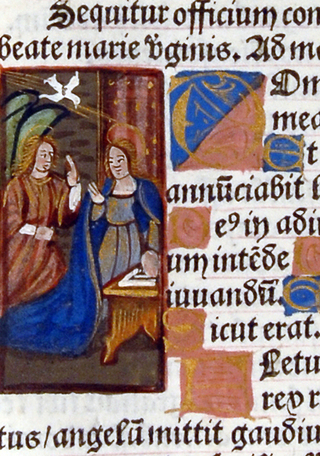 Sequitur officium con
beate marie v̄ginis. Ad m
Dm
mea
Et
annūciabit l
eꝰ in adiu
um intēde
iuuandū.
Sicut erat.
Letu
rex r
tus/angelū mittit gaudiu